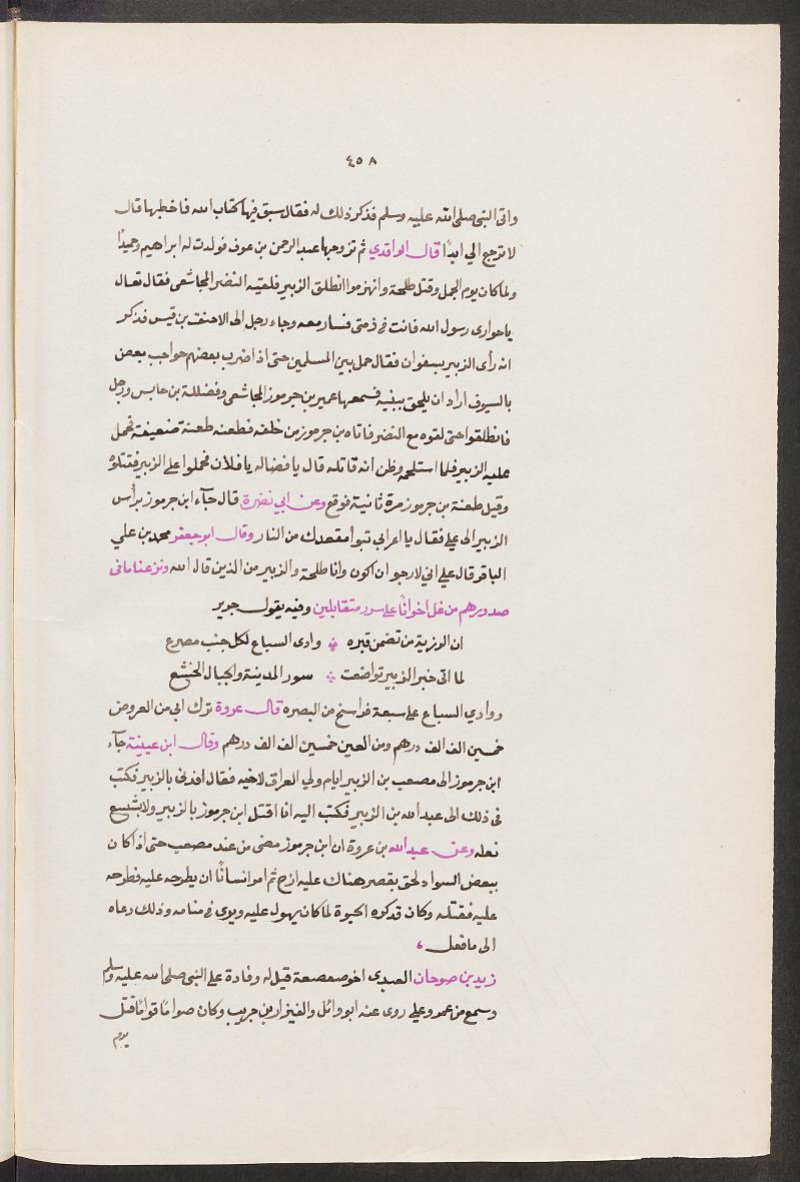 ٤٥٨
واتى النبى صلى الله عليه وسلم فذكر ذلك له فقال سبق فيها كتاب الله فاخطبها قال
لا ترجع الي ابدًا قال الواقدي ثم تزوجها عبد الرحمن بن عوف فولدت له ابراهيم وحميدًا
ولما كان يوم الجمل وقتل طلحة وانهزموا انطلق الزبير فلقيه النضر المجاشعى فقال تعال
يا حوارى رسول الله فانت فى ذمتى فسار معه وجاء رجل الى الاحنف بن قيس فذكر
انه رأى الزبير بسفوان فقال حمل بين المسلمين حتى اذا ضرب بعضهم حواجب بعض
بالسيوف اراد ان يلحق ببنيه فسمعها عمير بن جرموز المجاشعى وفضللة بن حابس ورجل
فانطلقوا حتى لقوه مع النضر فاتاه بن جرموز من خلفه فطعنه طعنة ضعيفة فحمل
عليه الزبير فلما استلحمه وظن انه قاتله قال يا فضاله يا فلان فحملوا على الزبير فقتلوه
وقيل طعنة بن جرموز مرة ثانية فوقع وعن ابي نضرة قال جآء ابن جرموز برأس
الزبير الى علي فقال يا اعرابي تبوأ مقعدك من النار وقال ابو جعفر محمد بن علي
الباقر قال علي اني لارجو ان اكون وانا طلحة والزبير من الذين قال الله ونزعنا مافى
صدورهم من غل اخوانًا على سرر متقابلين وفيه يقول جرير
ان الرزية من تضمن قبره ؞ وادى السباع لكل جنب مصرع
لما اتى خبر الزبير تواضعت ؞ سور المدينة والجبال الخشع
ووادي السباع على سبعة فراسخ من البصره قال عروة ترك ابى من العروض
خمسين الف الف درهم ومن العين خمسين الف الف درهم وقال ابن عيينة جآء
ابن جرموز الى مصعب بن الزبير ايام ولي العراق لاخيه فقال اقدنى بالزبير فكتب
فى ذلك الى عبد الله بن الزبير فكتب اليه انا اقتل ابن جرموز بالزبير ولا بشسع
نعله وعن عبد الله بن عروة ان ابن جرموز مضى من عند مصعب حتى اذا كان
ببعض السواد لحق بقصر هناك عليه ازج ثم امر انسانًا ان يطرحه عليه فطرحه
عليه فقتله وكان قد كره الحيوة لما كان يهول عليه ويرى فى منامه وذلك دعاه
الى ما فعل ،
زيد بن صوحان العبدى اخو صعصعة قيل له وفادة على النبى صلى الله عليه وسلم
وسمع من عمر وعلي روى عنه ابو وائل والفيزار بن حريب وكان صوامًا قوامًا قتل
يوم